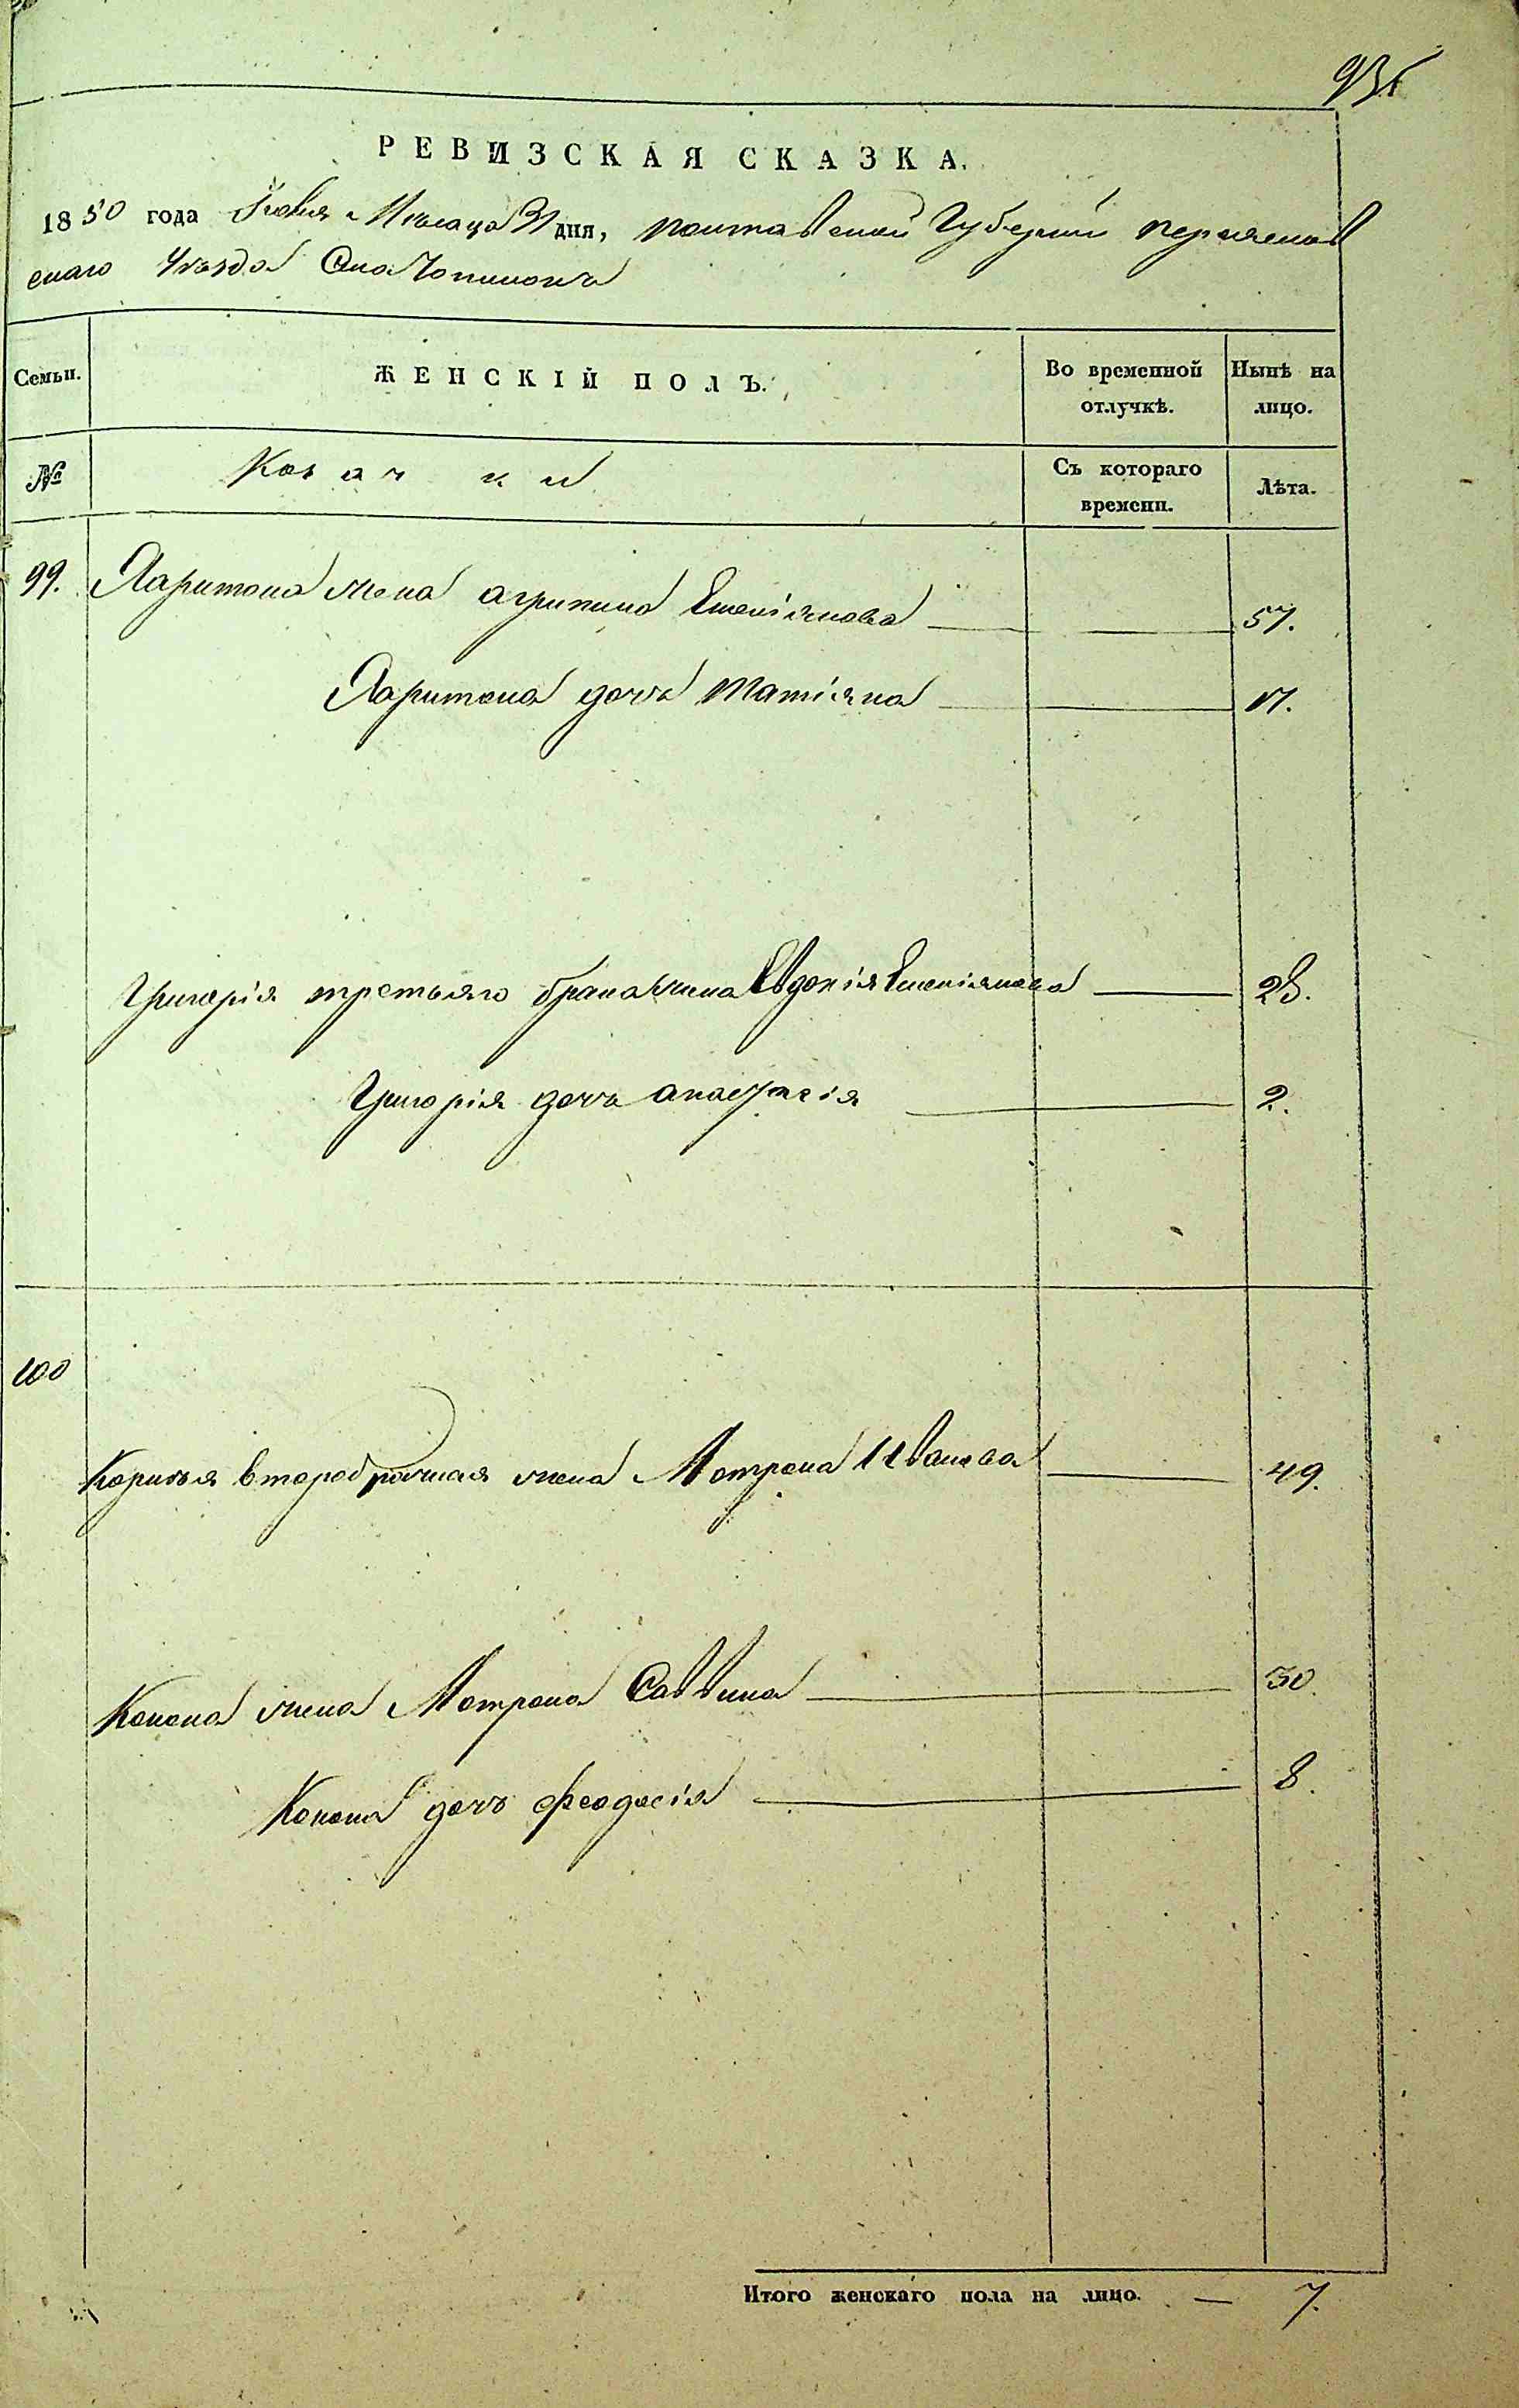 РЕВИЗСКАЯ СКАЗКА.
1850 года Июня Месяца дня, Полтавской Губернии Переяслав
скаго Уезда Села
Семьи.
ЖЕНСКІЙ ПОЛЪ.
Во временной
отлучкѣ.
Нынѣ на
лицо.
№
Козачки
Съ котораго
времени.
Лѣта.
99. Харитона жена агрипина Емеліянова 57.
Харитона дочь Татіяна 17.
Григорія третьяго брака жена Евдокія Емеліянова 28.
Григорія дочь анастасія 2.
100
Корнѣя второбрачная жена Мотрона Иванова 49.
Конона жена Мотрона Саввина 30.
Конона дочь Феодосія 8.
Итого женскаго пола на лицо. — 7.